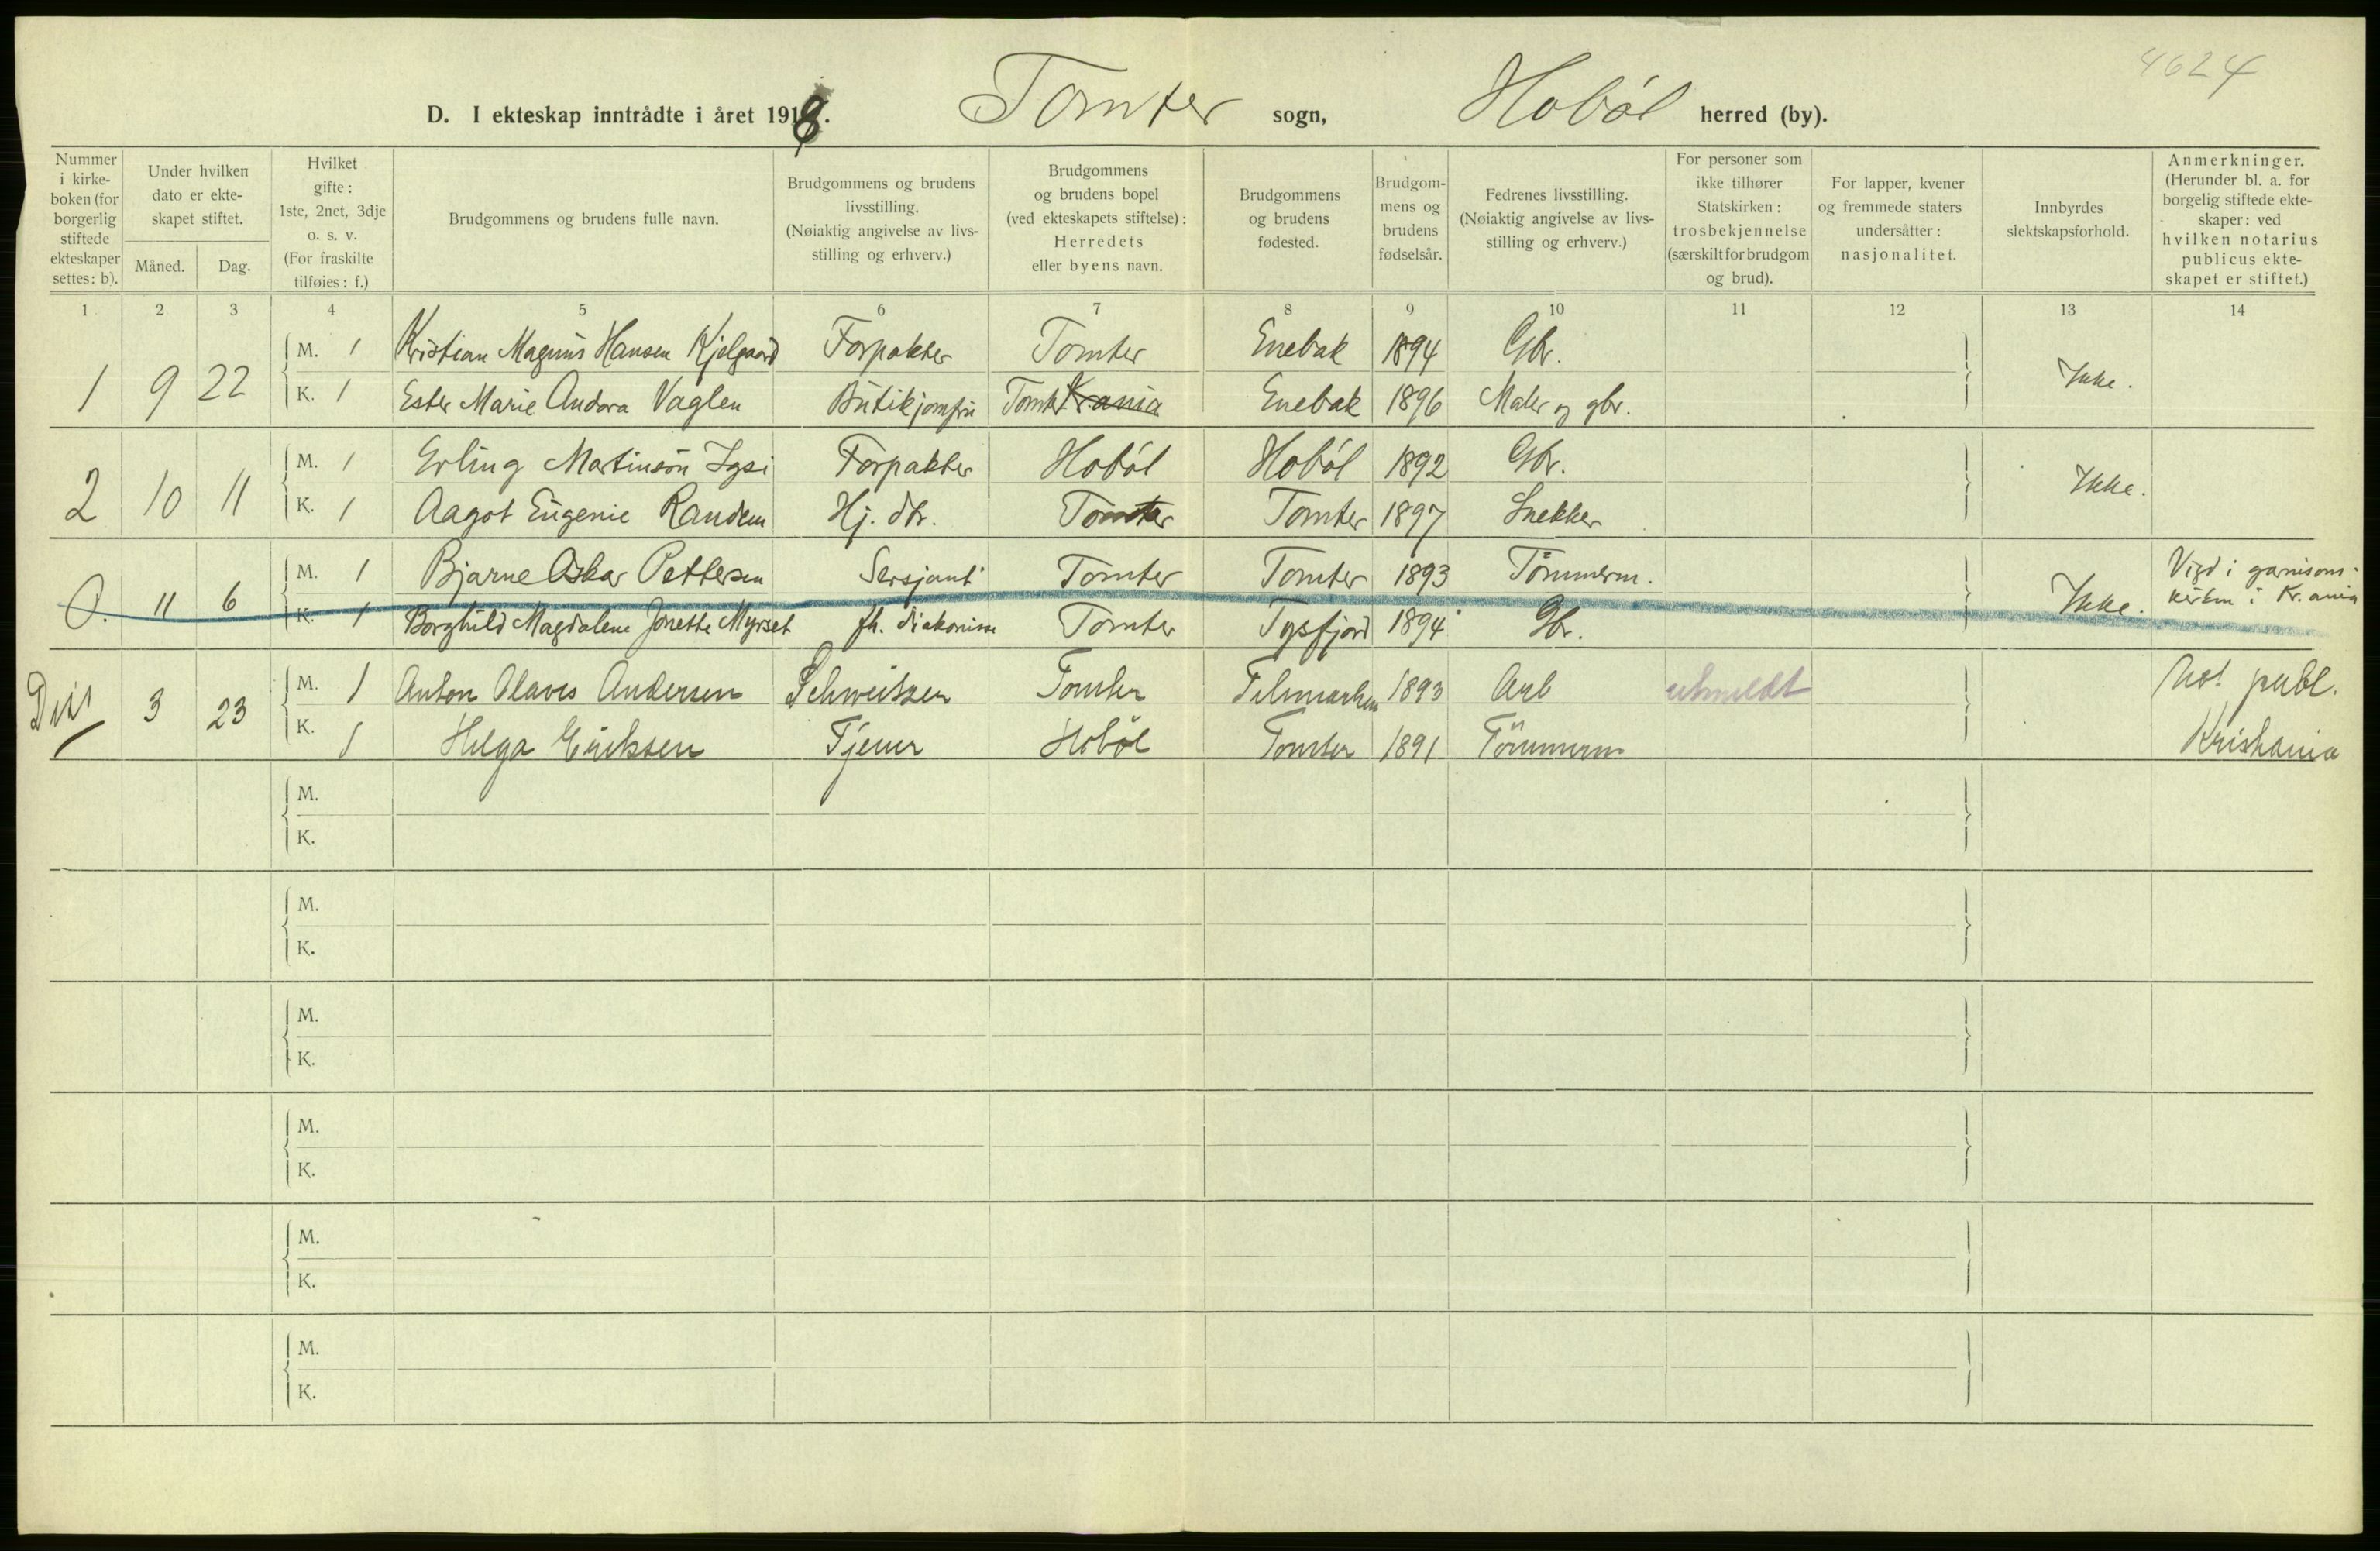 4624
D. I ekteskap inntrådte i året 1918. Tomter sogn, Hobøl herred (by).
Nummer i kirkeboken (for borgerlig stiftede ekteskaper settes: b).
Under hvilken dato er ekteskapet stiftet.
Måned. Dag.
Hvilket gifte: 1ste, 2net, 3dje o. s. v. (For fraskilte tilføies: f.)
Brudgommens og brudens fulle navn.
Brudgommens og brudens livsstilling. (Nøiaktig angivelse av livsstilling og erhverv.)
Brudgommens og brudens bopel (ved ekteskapets stiftelse): Herredets eller byens navn.
Brudgommens og brudens fødested.
Brudgommens og brudens fødselsår.
Fedrenes livsstilling. (Nøiaktig angivelse av livsstilling og erhverv.)
For personer som ikke tilhører Statskirken: trosbekjennelse (særskilt for brudgom og brud).
For lapper, kvener og fremmede staters undersåtter: nasjonalitet.
Innbyrdes slektskapsforhold.
Anmerkninger. (Herunder bl. a. for borgelig stiftede ekteskaper: ved hvilken notarius publicus ekteskapet er stiftet.)
1 2 3 4 5 6 7 8 9 10 11 12 13 14
1 9 22 M. 1 Kristian Magnus Hansen Kjelgaard Forpakter Tomter Enebak 1894 Gbr. Ikke.
K. 1 Ester Marie Andora Vaglen Butikjomfru Tomt Kr.ania Enebak 1896 Maler og gbr.
2 10 11 M. 1 Erling Martinsøn Igsi Forpakter Hobøl Hobøl 1892 Gbr. Ikke.
K. 1 Aagot Eugenie Randem Hj. dtr. Tomter Tomter 1897 Snekker
0. 11 6 M. 1 Bjarne Oskar Pettersen Sersjant Tomter Tomter 1893 Tömmerm. Ikke. Vigd i garnisons-
kirken i Kr.ania
K. 1 Borghild Magdalene Jonette Myrset fh. diakonisse Tomter Tysfjord 1894 Gbr.
Diss 3 23 M. 1 Anton Olaves Andersen Schweitzer Tomter Telemarken 1893 Arb utmeldt Not. publ.
K. 1 Helga Eriksen Tjener Hobøl Tomter 1891 Tömmerm Kristiania
M.
K.
M.
K.
M.
K.
M.
K.
M.
K.
M.
K.